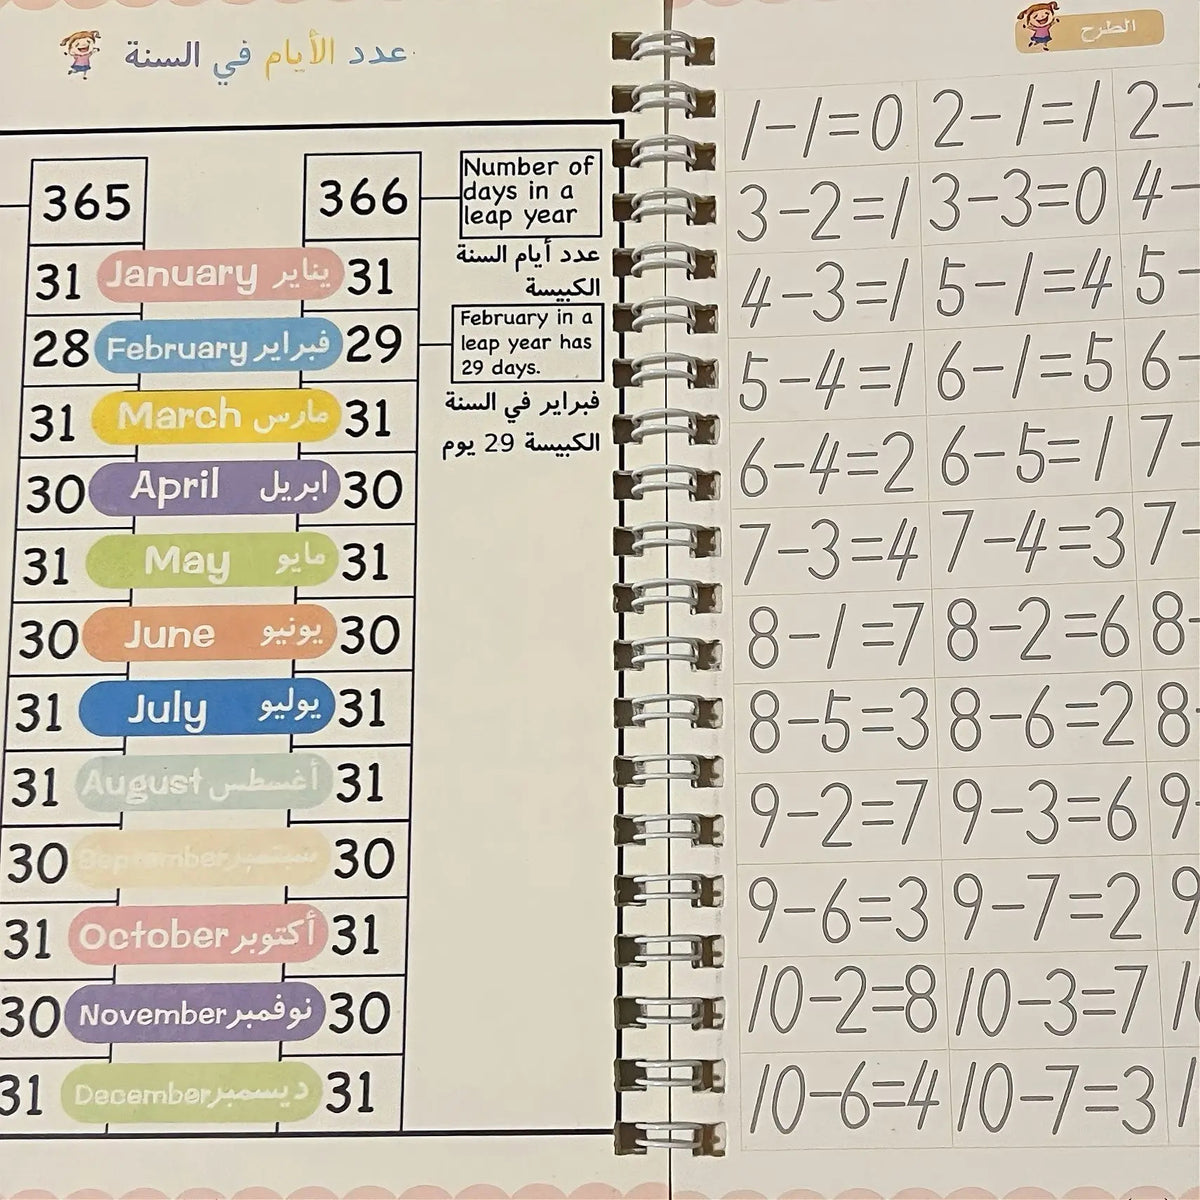 عدد الأيام في السنة
365
366
Number of
days in a
leap year
عدد أيام السنة
الكبيسة
31 January يناير 31
28 February فبراير 29
February in a
leap year has
29 days.
فبراير في السنة
الكبيسة 29 يوم
31 March مارس 31
30 April ابريل 30
31 May مايو 31
30 June يونيو 30
31 July يوليو 31
31 August أغسطس 31
30 September سبتمبر 30
31 October أكتوبر 31
30 November نوفمبر 30
31 December ديسمبر 31
الطرح
1-1=0 2-1=1 2-
3-2=1 3-3=0 4-
4-3=1 5-1=4 5-
5-4=1 6-1=5 6-
6-4=2 6-5=1 7-
7-3=4 7-4=3 7-
8-1=7 8-2=6 8-
8-5=3 8-6=2 8-
9-2=7 9-3=6 9-
9-6=3 9-7=2 9
10-2=8 10-3=7 10
10-6=4 10-7=3 1